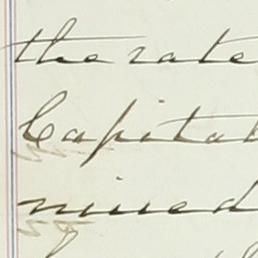 the rate
Capital
mined